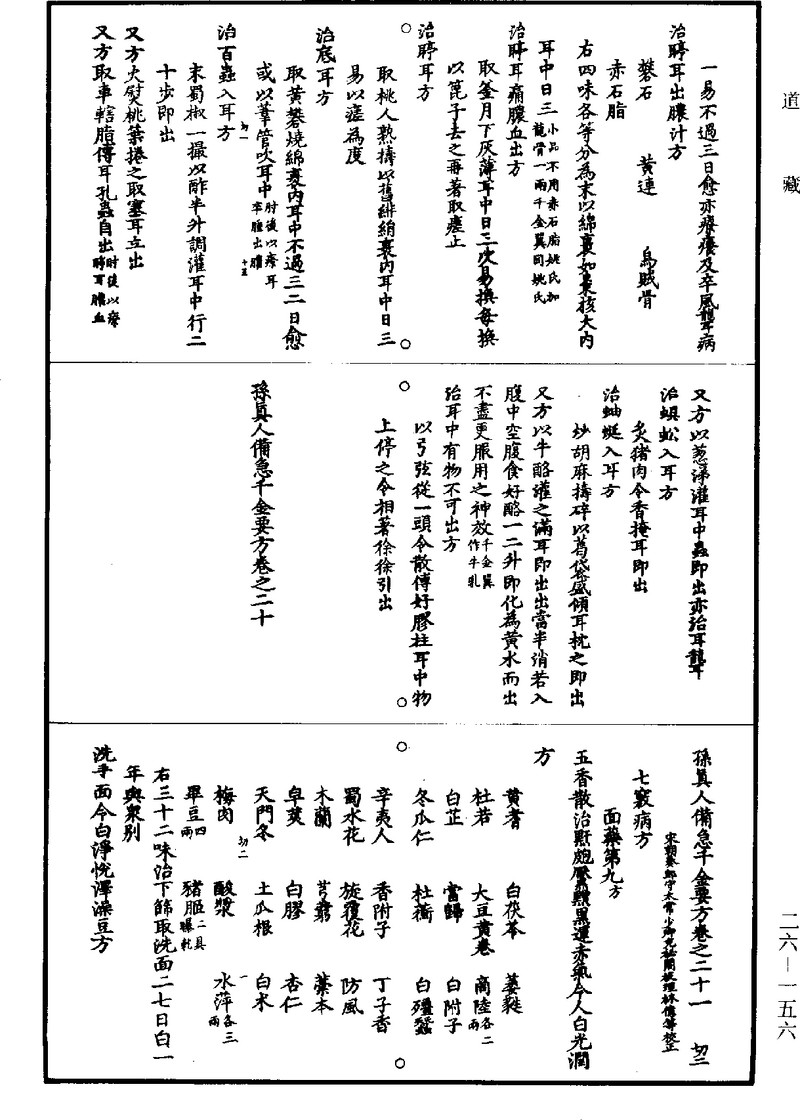 道藏
一易不過三日愈亦療癢及卒風聾病
治聤耳出膿汁方
礬石 黃連 烏賊骨
赤石脂
右四味各等分為末以綿裹如棗核大內
耳中日三小品不用赤石脂姚氏加龍骨一兩千金翼同姚氏
治聤耳痛膿血出方
取釜月下灰薄耳中日三次易換每換
以篦子去之再著取瘥止
治聤耳方
取桃人熟擣以舊緋絹裹內耳中日三
易以瘥為度
治底耳方
取黃礬燒綿裹內耳中不過三二日愈
或以葦管吹耳中肘後以療耳卒腫出膿
治百蟲入耳方
末蜀椒一撮以酢半升調灌耳中行二
十步即出
又方火熨桃葉捲之取塞耳立出
又方取車轄脂傅耳孔蟲自出肘後以療聤耳膿血
又方以葱涕灌耳中蟲即出亦治耳聾
治蜈蚣入耳方
炙猪肉令香掩耳即出
治蚰蜒入耳方
炒胡麻擣碎以葛袋盛傾耳枕之即出
又方以牛酪灌之滿耳即出出當半消若入
腹中空腹食好酪一二升即化為黃水而出
不盡更服用之神效千金翼作牛乳
治耳中有物不可出方
以弓弦從一頭令散傅好膠柱耳中物
上停之令相著徐徐引出
孫真人備急千金要方卷之二十
孫真人備急千金要方卷之二十一 切三
宋朝奉郎守太常少卿充祕閣校理林億等校正
七竅病方
面藥第九方
五香散治䵟皰黶黯黑運赤氣令人白光潤
方
黃耆 白茯苓 萎蕤
杜若 大豆黃卷 商陸各二兩
白芷 當歸 白附子
冬瓜仁 杜蘅 白殭蠶
辛夷人 香附子 丁子香
蜀水花 旋覆花 防風
木蘭 芎藭 藁本
皁莢 白膠 杏仁
天門冬 土瓜根 白朮
梅肉 酸漿 水萍各三兩
畢豆四兩 豬胵二具曝乾
右三十二味治下篩取洗面二七日白一
年與眾別
洗手面令白淨悅澤澡豆方
二六—一五六